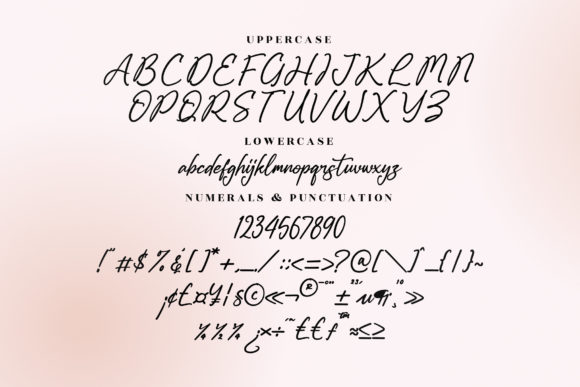 UPPERCASE
ABCDEFGHIJKLMN
OPQRSTUVWXYZ
LOWERCASE
abcdefghijklmnopqrstuvwxyz
NUMERALS & PUNCTUATION
1234567890
!"#$%&[]*+,-./:;<=>?@[\]^_{|}~
¡¢£¤¥¦§©«¬®¯°±²³´µ¶¸¹º»
¼½¾¿×÷ˆ˜£€ƒ™≈≤≥